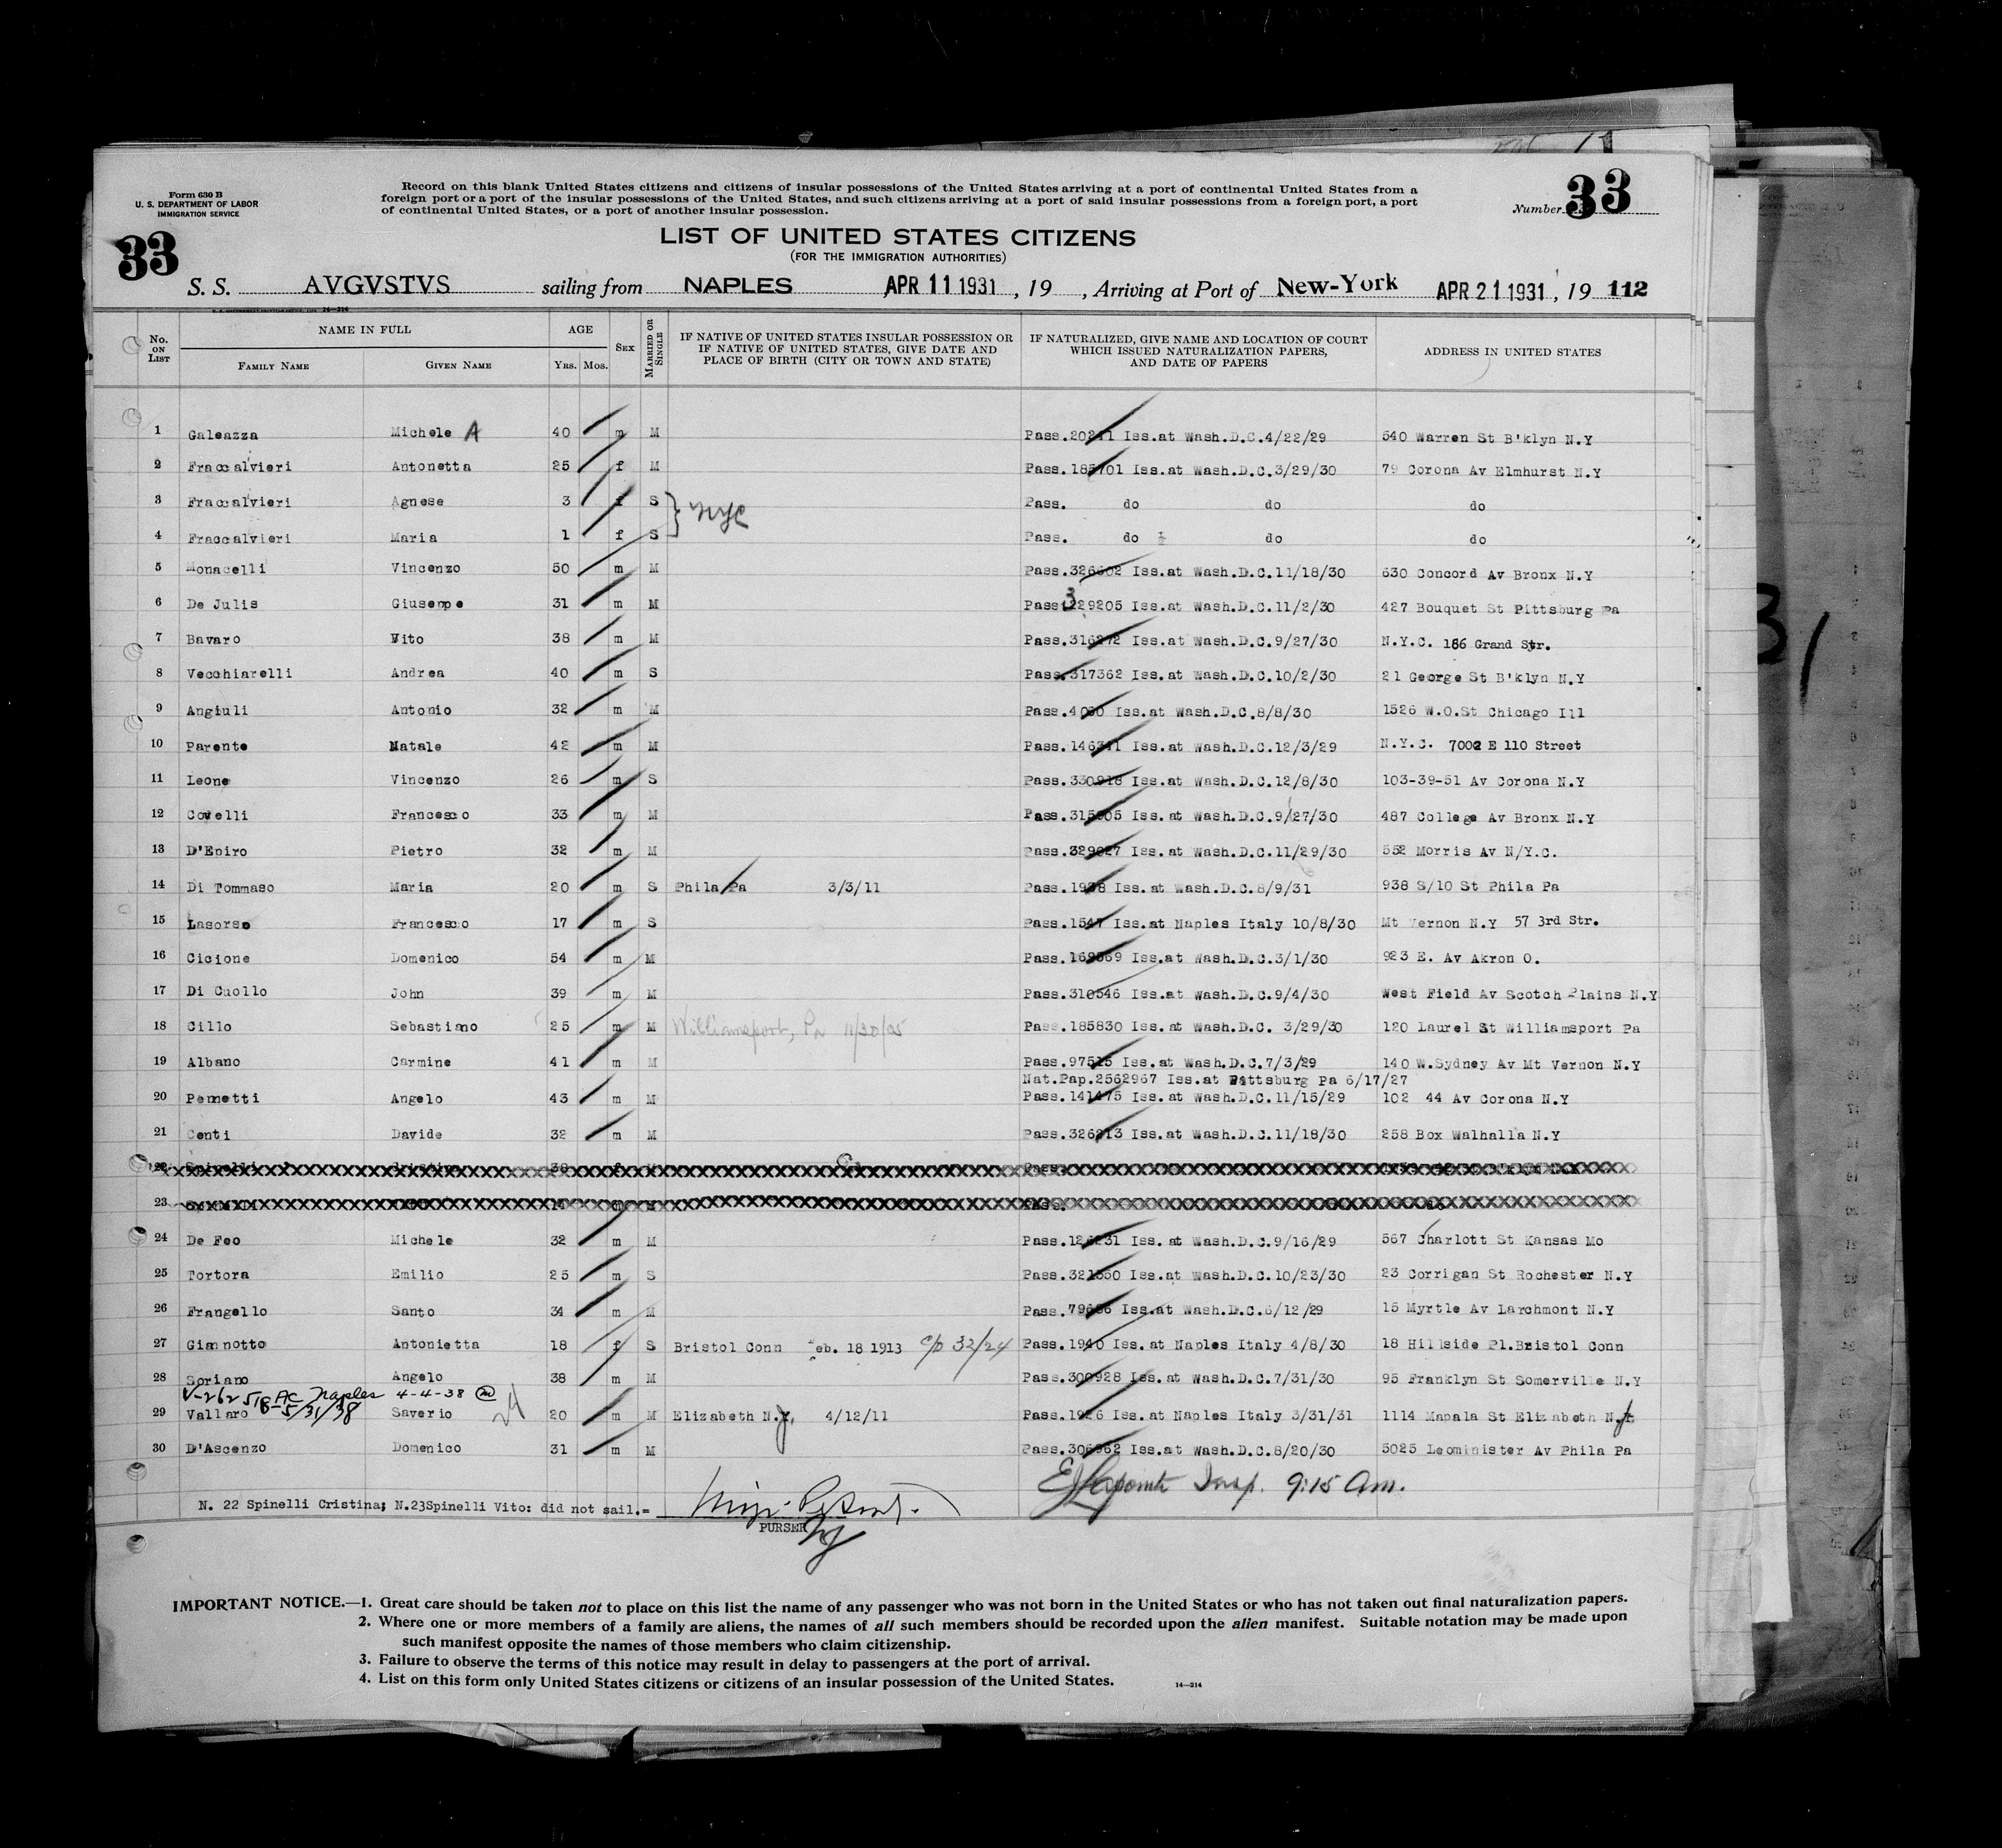 Form 630 B
U. S. DEPARTMENT OF LABOR
IMMIGRATION SERVICE
Record on this blank United States citizens and citizens of insular possessions of the United States arriving at a port of continental United States from a
foreign port or a port of the insular possessions of the United States, and such citizens arriving at a port of said insular possessions from a foreign port, a port
of continental United States, or a port of another insular possession.
Number 33
33
LIST OF UNITED STATES CITIZENS
(FOR THE IMMIGRATION AUTHORITIES)
S. S. AVGVSTVS sailing from NAPLES APR 11 1931, 19 , Arriving at Port of New-York APR 21 1931, 19 112
No. ON LIST NAME IN FULL AGE SEX MARRIED OR SINGLE IF NATIVE OF UNITED STATES INSULAR POSSESSION OR IF NATIVE OF UNITED STATES, GIVE DATE AND PLACE OF BIRTH (CITY OR TOWN AND STATE) IF NATURALIZED, GIVE NAME AND LOCATION OF COURT WHICH ISSUED NATURALIZATION PAPERS, AND DATE OF PAPERS ADDRESS IN UNITED STATES
FAMILY NAME GIVEN NAME YRS. MOS.
1 Galeazza Michele A 40 m M Pass. Iss.at Wash.D.C.4/22/29 540 Warren St B'klyn N.Y
2 Fraccalvieri Antonetta 25 f M Pass.185701 Iss.at Wash.D.C.3/29/30 79 Corona Av Elmhurst N.Y
3 Fraccalvieri Agnese 3 f S NYC Pass. do do do
4 Fraccalvieri Maria 1 f S Pass. do do do
5 Monacelli Vincenzo 50 m M Pass. Iss.at Wash.D.C.11/18/30 630 Concord Av Bronx N.Y
6 De Julis Giuseppe 31 m M Pass.329205 Iss.at Wash.D.C.11/2/30 427 Bouquet St Pittsburg Pa
7 Bavaro Vito 38 m M Pass.316272 Iss.at Wash.D.C.9/27/30 N.Y.C. 186 Grand Str.
8 Vecchiarelli Andrea 40 m S Pass.317362 Iss.at Wash.D.C.10/2/30 21 George St B'klyn N.Y
9 Angiuli Antonio 32 m M Pass. Iss.at Wash.D.C.8/8/30 1526 W.O.St Chicago Ill
10 Parente Natale 42 m M Pass. Iss.at Wash.D.C.12/3/29 N.Y.C. 7002 E 110 Street
11 Leone Vincenzo 26 m S Pass.330918 Iss.at Wash.D.C.12/8/30 103-39-51 Av Corona N.Y
12 Covelli Francesco 33 m M Pass. Iss.at Wash.D.C.9/27/30 487 College Av Bronx N.Y
13 D'Epiro Pietro 32 m M Pass. Iss.at Wash.D.C.11/29/30 552 Morris Av N/Y.C.
14 Di Tommaso Maria 20 m S Phila Pa 3/3/11 Pass. Iss.at Wash.D.C.8/9/31 938 S/10 St Phila Pa
15 Lasorso Francesco 17 m S Pass.1547 Iss.at Naples Italy 10/8/30 Mt Vernon N.Y 57 3rd Str.
16 Cicione Domenico 54 m M Pass. Iss.at Wash.D.C.3/1/30 923 E. Av Akron O.
17 Di Cuollo John 39 m M Pass.310546 Iss.at Wash.D.C.9/4/30 West Field Av Scotch Plains N.Y
18 Cillo Sebastiano 25 m M Williamsport, Pa 11/30/05 Pass.185830 Iss.at Wash.D.C. 3/29/30 120 Laurel St Williamsport Pa
19 Albano Carmine 41 m M Pass.97515 Iss.at Wash.D.C.7/3/29 140 W.Sydney Av Mt Vernon N.Y
Nat.Pap.2562967 Iss.at Pittsburg Pa 6/17/27
20 Pernetti Angelo 43 m M Pass.141475 Iss.at Wash.D.C.11/15/29 102 44 Av Corona N.Y
21 Centi Davide 32 m M Pass.326213 Iss.at Wash.D.C.11/18/30 258 Box Walhalla N.Y
22 Spinelli Cristina
23
24 De Feo Michele 32 m M Pass.126231 Iss.at Wash.D.C.9/16/29 567 Charlott St Kansas Mo
25 Tortora Emilio 25 m S Pass. Iss.at Wash.D.C.10/23/30 23 Corrigan St Rochester N.Y
26 Frangello Santo 34 m M Pass. Iss.at Wash.D.C.6/12/29 15 Myrtle Av Larchmont N.Y
27 Giannotto Antonietta 18 f S Bristol Conn Feb. 18 1913 c/p 32/24 Pass.1940 Iss.at Naples Italy 4/8/30 18 Hillside Pl.Bristol Conn
28 Soriano Angelo 38 m M Pass.300928 Iss.at Wash.D.C.7/31/30 95 Franklyn St Somerville N.Y
V-262518-AC-Naples 4-4-38
5/31/38
29 Vallaro Saverio 20 m M Elizabeth N.J, 4/12/11 Pass.1926 Iss.at Naples Italy 3/31/31 1114 Mapala St Elizabeth N.J.
30 D'Ascenzo Domenico 31 m M Pass. Iss.at Wash.D.C.8/20/30 5025 Leominister Av Phila Pa
Insp. 9:15 Am.
N. 22 Spinelli Cristina; N.23Spinelli Vito: did not sail.=
PURSER
IMPORTANT NOTICE.—1. Great care should be taken not to place on this list the name of any passenger who was not born in the United States or who has not taken out final naturalization papers.
2. Where one or more members of a family are aliens, the names of all such members should be recorded upon the alien manifest. Suitable notation may be made upon
such manifest opposite the names of those members who claim citizenship.
3. Failure to observe the terms of this notice may result in delay to passengers at the port of arrival.
4. List on this form only United States citizens or citizens of an insular possession of the United States.
14—214